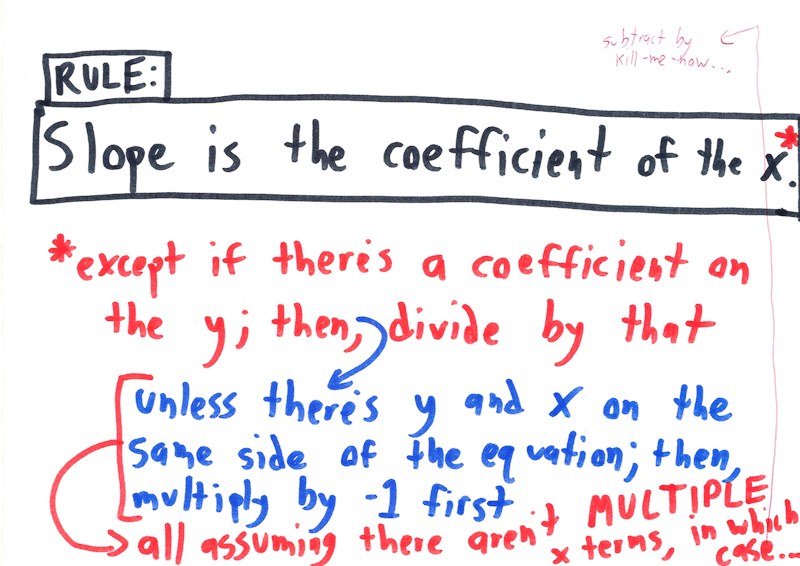 subtract by
kill-me-now...
RULE:
Slope is the coefficient of the x.*
*except if there's a coefficient on
the y; then, divide by that
unless there's y and x on the
same side of the equation; then,
multiply by -1 first
all assuming there aren't MULTIPLE
x terms, in which
case...